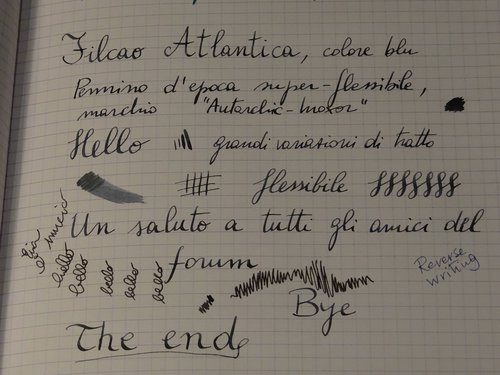 Filcao Atlantica, colore blu
Pennino d'epoca super-flessibile,
marchio "Autarchic-Inoxor"
Hello grandi variazioni di tratto
flessibile fffffff
Un saluto a tutti gli amici del
forum
hello
hello
hello
hello
hello
Reverse
writing
Bye
The end